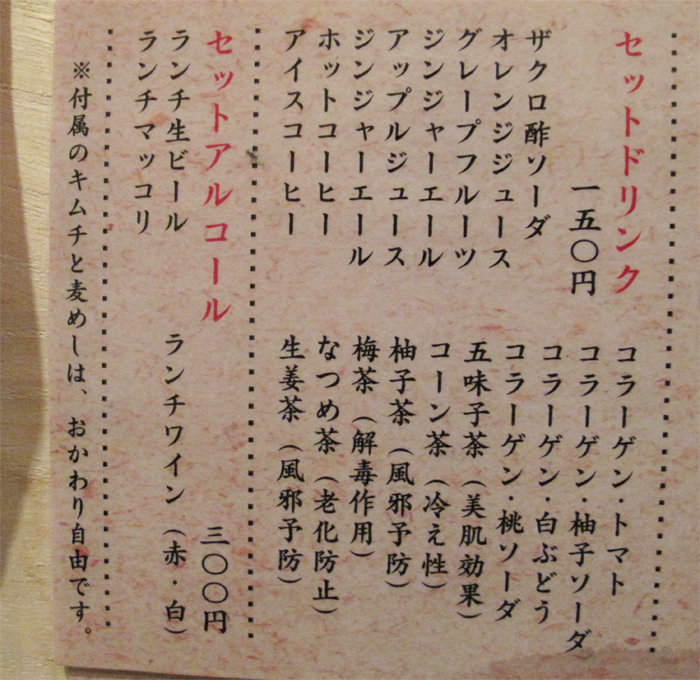 セットドリンク
一五〇円
ザクロ酢ソーダ
オレンジジュース
グレープフルーツ
ジンジャーエール
アップルジュース
ジンジャーエール
ホットコーヒー
アイスコーヒー
コラーゲン・トマト
コラーゲン・柚子ソーダ
コラーゲン・白ぶどう
コラーゲン・桃ソーダ
五味子茶（美肌効果）
コーン茶（冷え性）
柚子茶（風邪予防）
梅茶（解毒作用）
なつめ茶（老化防止）
生姜茶（風邪予防）
セットアルコール
三〇〇円
ランチ生ビール
ランチワイン（赤・白）
ランチマッコリ
※付属のキムチと麦めしは、おかわり自由です。